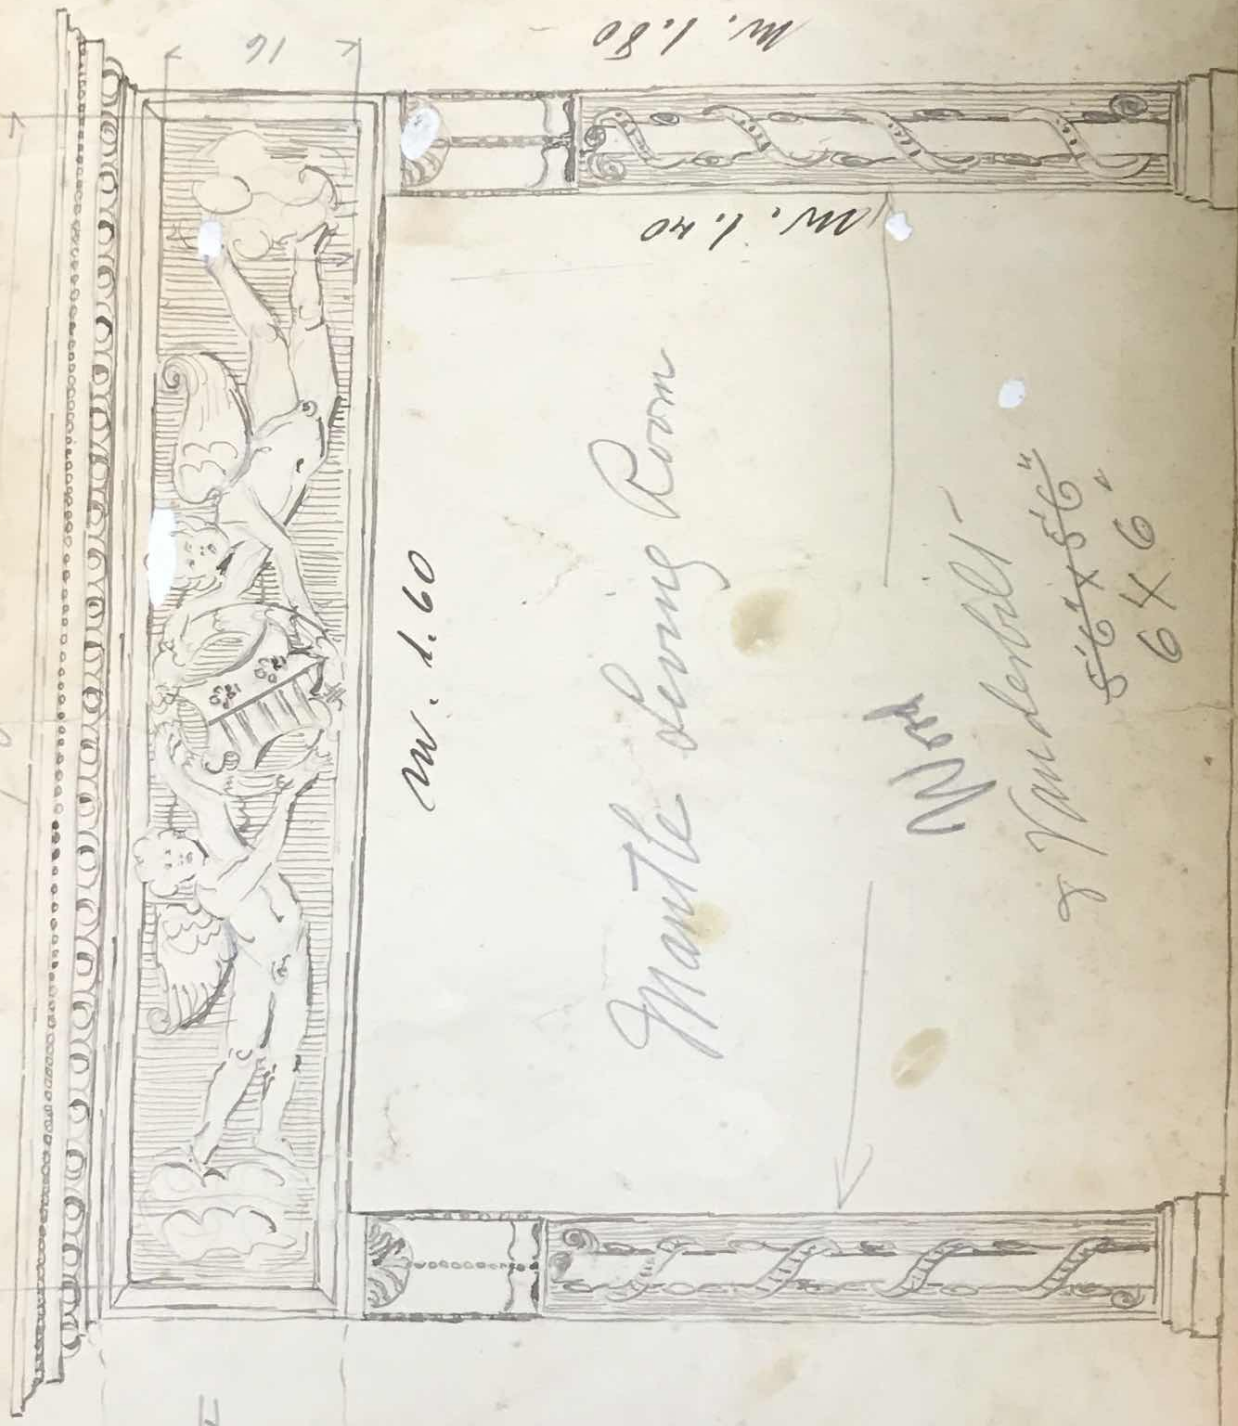 16
m. 1.80
m. 1.40
m. 1.60
Mantle Living Room
Vanderbilt -
5'6" x 5'6"
6 x 6"